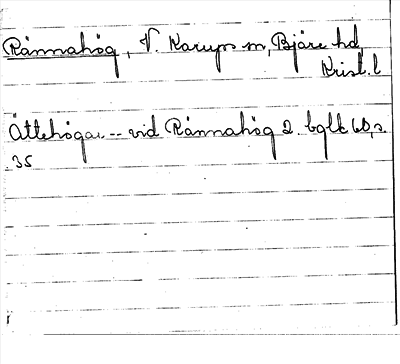 Rännahög, V. Karups sn, Bjäre hd,
Krist. l
Ättehögar -- vid Rännahög 2. bglk 6B, s.
35